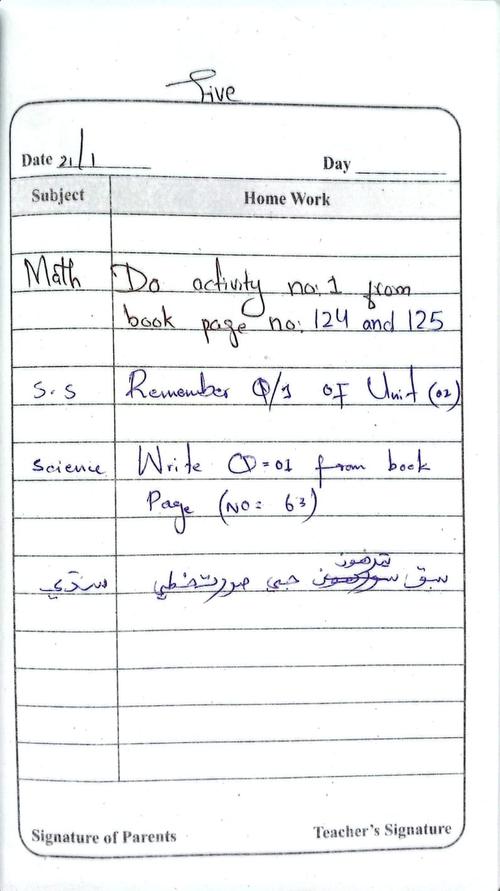 Five
Date 21/1 Day
Subject Home Work
Math Do activity no: 1 from
book page no: 124 and 125
S.S Remember Q/1 OF Unit (02)
Science Write Q=01 from book
Page (NO= 63)
سنڌي سبق جي صورتخطي
Signature of Parents Teacher's Signature